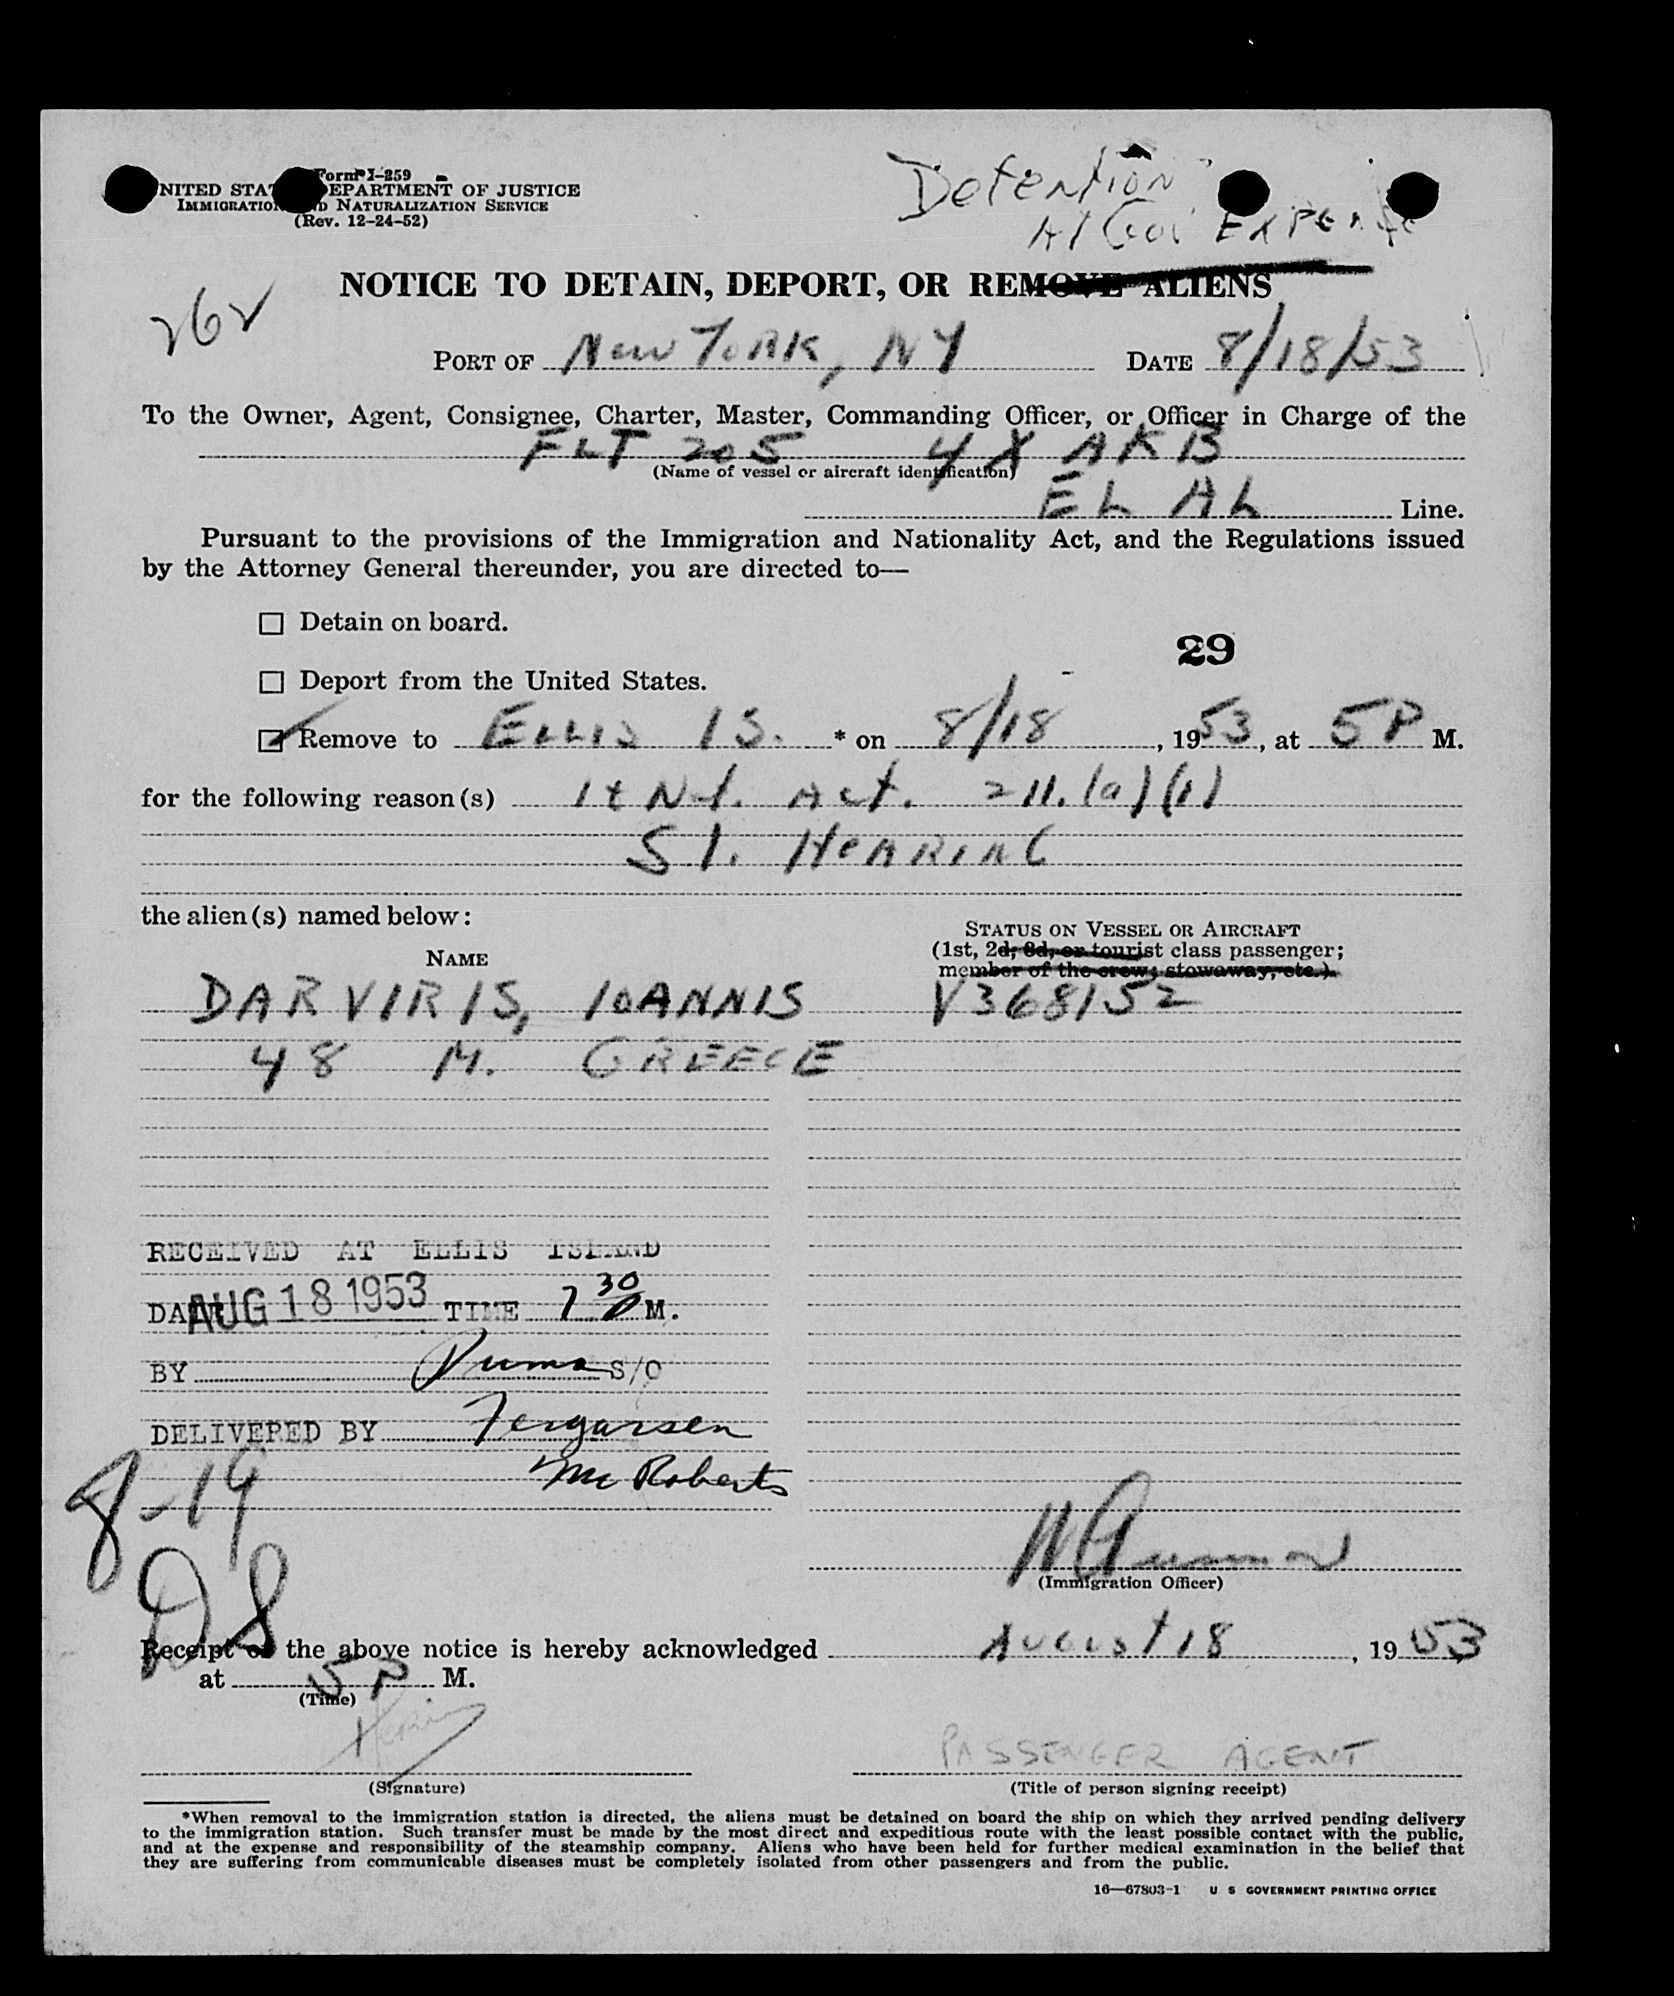 Form I-259
UNITED STATES DEPARTMENT OF JUSTICE
IMMIGRATION AND NATURALIZATION SERVICE
(Rev. 12-24-52)
Detention
At Gov Expense
NOTICE TO DETAIN, DEPORT, OR REMOVE ALIENS
262
PORT OF New York, NY DATE 8/18/53
To the Owner, Agent, Consignee, Charter, Master, Commanding Officer, or Officer in Charge of the
FLT 205 4X AKB
(Name of vessel or aircraft identification)
EL AL Line.
Pursuant to the provisions of the Immigration and Nationality Act, and the Regulations issued
by the Attorney General thereunder, you are directed to—
Detain on board.
29
Deport from the United States.
Remove to ELLIS IS. * on 8/18, 1953, at 5P M.
for the following reason(s) I & Nat. Act. 211.(a)(1)
S I. HEARING
the alien(s) named below:
STATUS ON VESSEL OR AIRCRAFT
(1st, 2d, 3d, or tourist class passenger;
member of the crew; stowaway, etc.)
NAME
DARVIRIS, IOANNIS V368152
48 M. GREECE
RECEIVED AT ELLIS ISLAND
DATE AUG 18 1953 TIME 7 30 P M.
BY S/O
DELIVERED BY Fergarsen
McRoberts
8-19
DS
(Immigration Officer)
Receipt of the above notice is hereby acknowledged August 18, 1953
at 5 P M.
(Time)
PASSENGER AGENT
(Signature) (Title of person signing receipt)
*When removal to the immigration station is directed, the aliens must be detained on board the ship on which they arrived pending delivery
to the immigration station. Such transfer must be made by the most direct and expeditious route with the least possible contact with the public,
and at the expense and responsibility of the steamship company. Aliens who have been held for further medical examination in the belief that
they are suffering from communicable diseases must be completely isolated from other passengers and from the public.
16—67803-1 U S GOVERNMENT PRINTING OFFICE